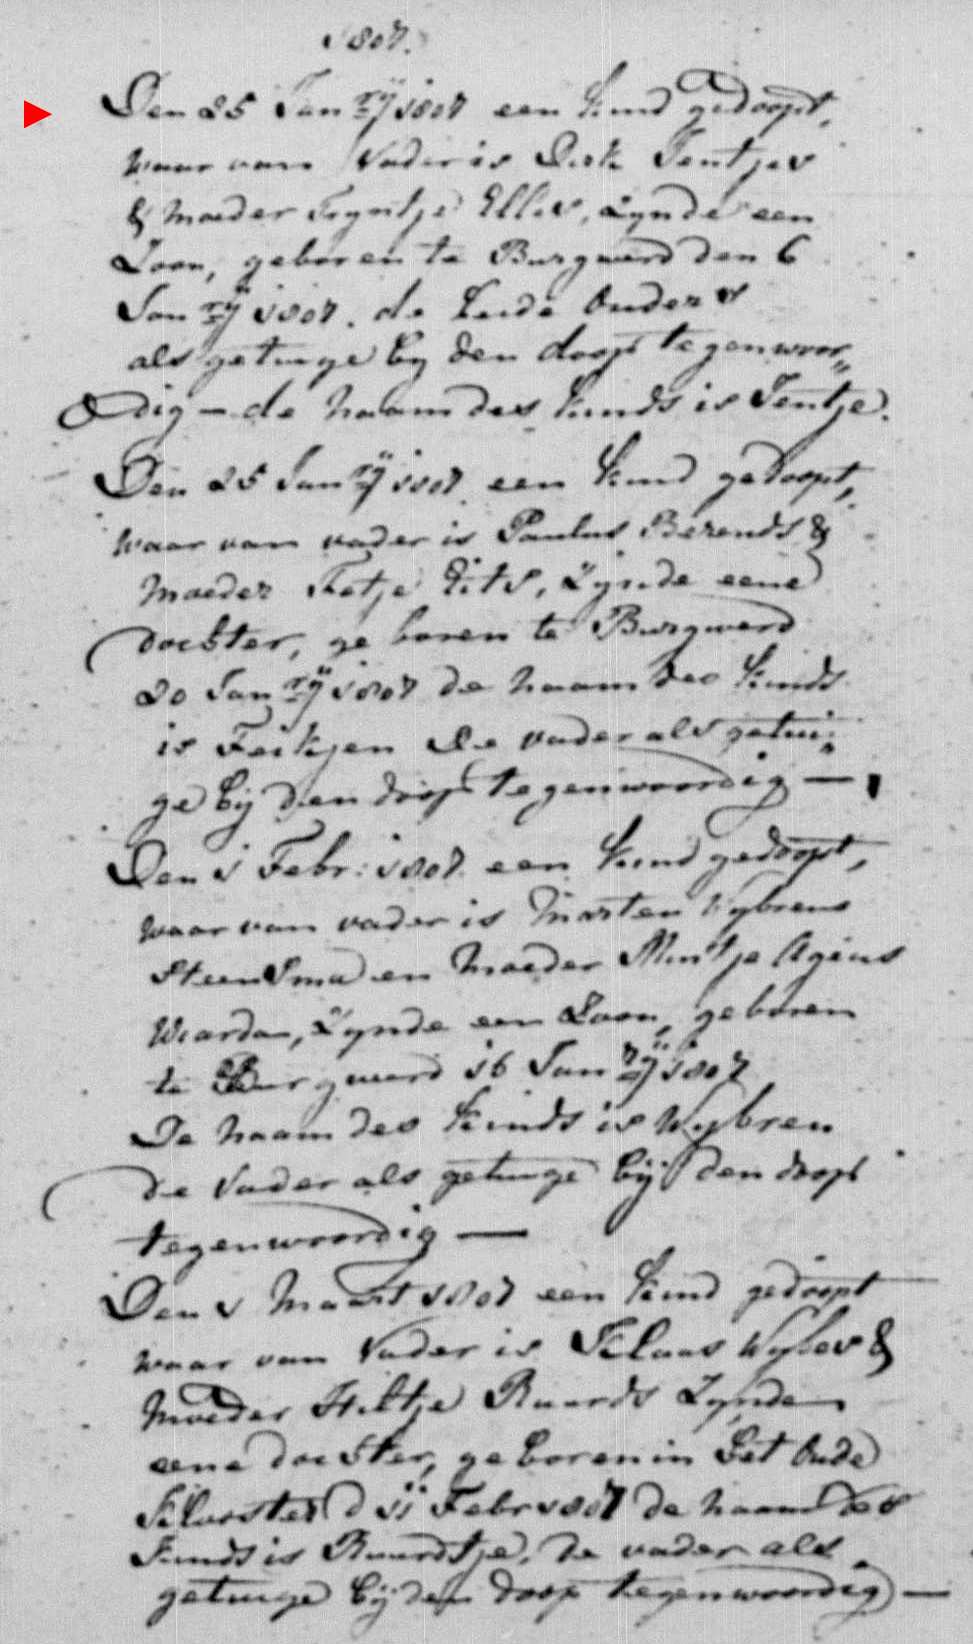 1807.
Den 25 Jan.rÿ 1807 een kind gedoopt,
waar van Vader is Dirk Jentjes
& moeder Tryntje Elles, Zynde een
Zoon, geboren te Burgwerd den 6
Jan.rÿ 1807. de beide Ouders
als getuige by den doop tegenwoor„
dig — de naam des kinds is Jentje.
Den 25 Jan.rÿ 1807 een kind gedoopt,
waar van vader is Paulus Berends &
moeder Fetje Eits, Zynde eene
dochter, geboren te Burgwerd
20 Jan.rÿ 1807 de naam des kinds
is Feikjen De vader als getui„
ge bÿ den doop tegenwoordig —
Den 1 Febr: 1807 een kind gedoopt,
waar van vader is Marten Wybrens
Steensma en moeder Mintje Agéus
Wiarda, Zynde een Zoon, geboren
te Burgwerd 16 Jan.rÿ 1807
De naam des kinds is Wybren
de Vader als getuige bÿ den doop
tegenwoordig —
Den 1 Maart 1807 een kind gedoopt
waar van Vader is Klaas Wybes &
Moeder Hiltje Ruurds Zynde
eene dochter, geboren in het Oude
Klooster d 11 Febr 1807 de naam des
kinds is Ruurdtje. de vader als
getuige bÿ den doop tegenwoordig —